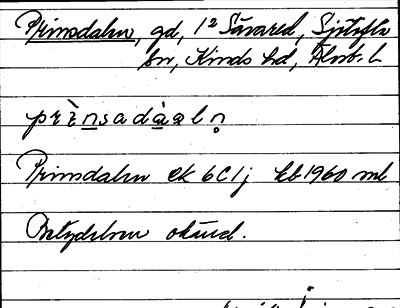 Prinsdalen, gd, 1² Sävared, Sjötofta
sn, Kinds hd, Älvsb. l
prìn̲sadà̲al n̥
Prinsdalen ek 6C1j kb1960 ml
Betydelsen okänd.